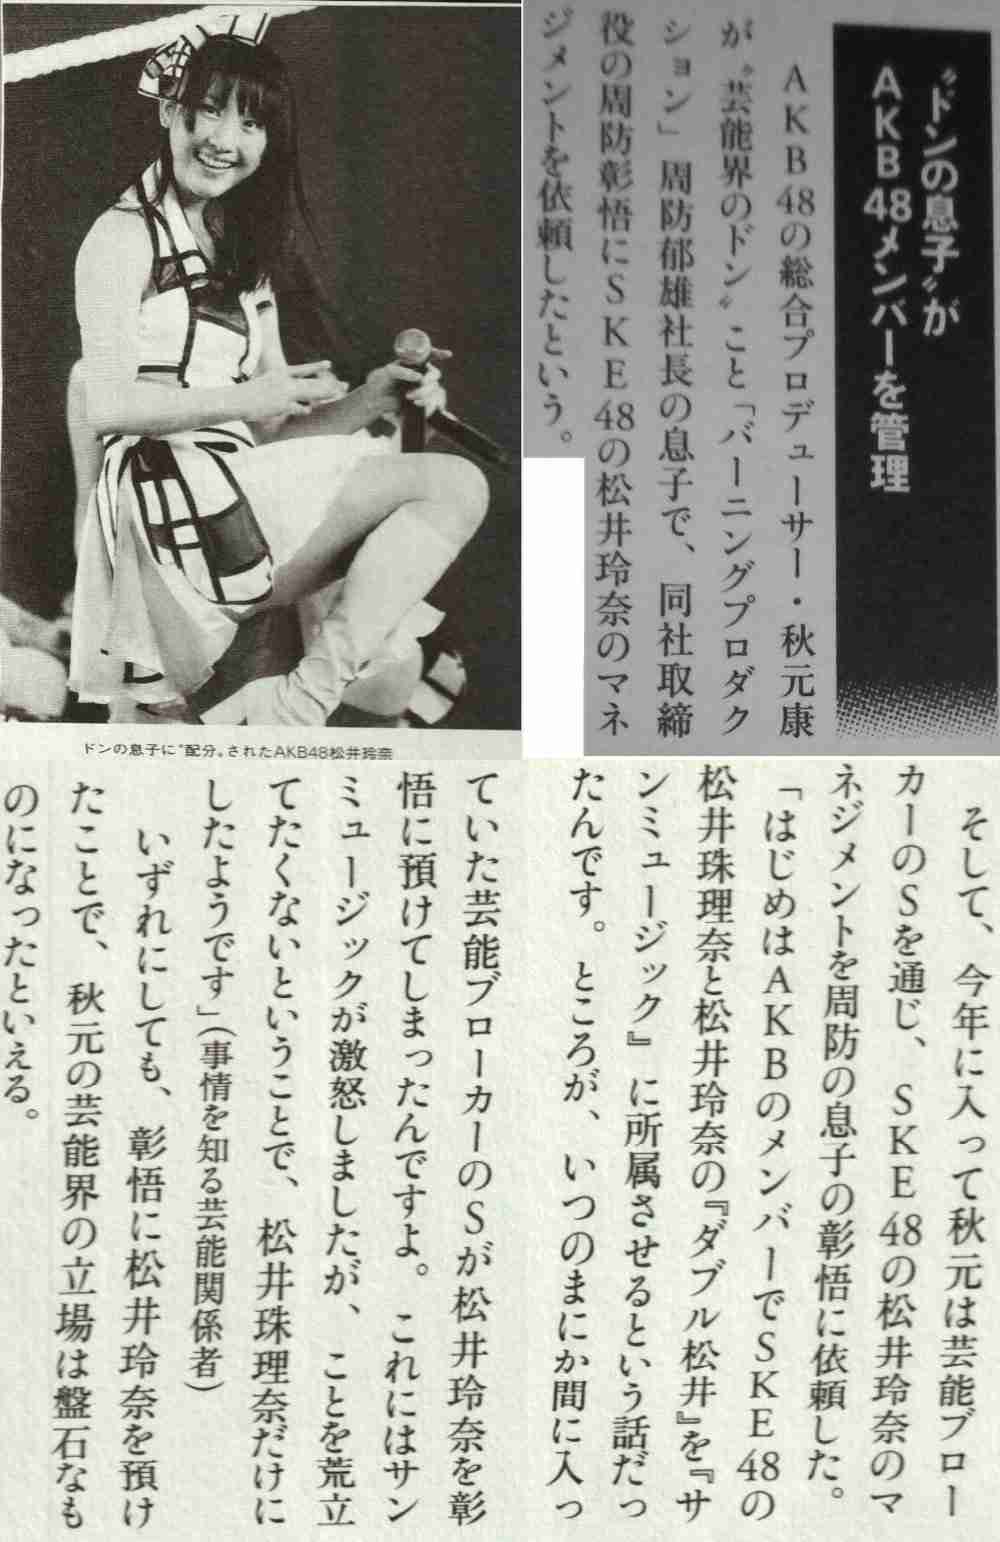 〝ドンの息子〟が
AKB48メンバーを管理
AKB48の総合プロデューサー・秋元康
が〝芸能界のドン〟こと「バーニングプロダク
ション」周防郁雄社長の息子で、同社取締
役の周防彰悟にSKE48の松井玲奈のマネ
ジメントを依頼したという。
ドンの息子に〝配分〟されたAKB48松井玲奈
そして、今年に入って秋元は芸能ブロー
カーのSを通じ、SKE48の松井玲奈のマ
ネジメントを周防の息子の彰悟に依頼した。
「はじめはAKBのメンバーでSKE48の
松井珠理奈と松井玲奈の『ダブル松井』を『サ
ンミュージック』に所属させるという話だっ
たんです。ところが、いつのまにか間に入っ
ていた芸能ブローカーのSが松井玲奈を彰
悟に預けてしまったんですよ。これにはサン
ミュージックが激怒しましたが、ことを荒立
てたくないということで、松井珠理奈だけに
したようです」(事情を知る芸能関係者)
いずれにしても、彰悟に松井玲奈を預け
たことで、秋元の芸能界の立場は盤石なも
のになったといえる。